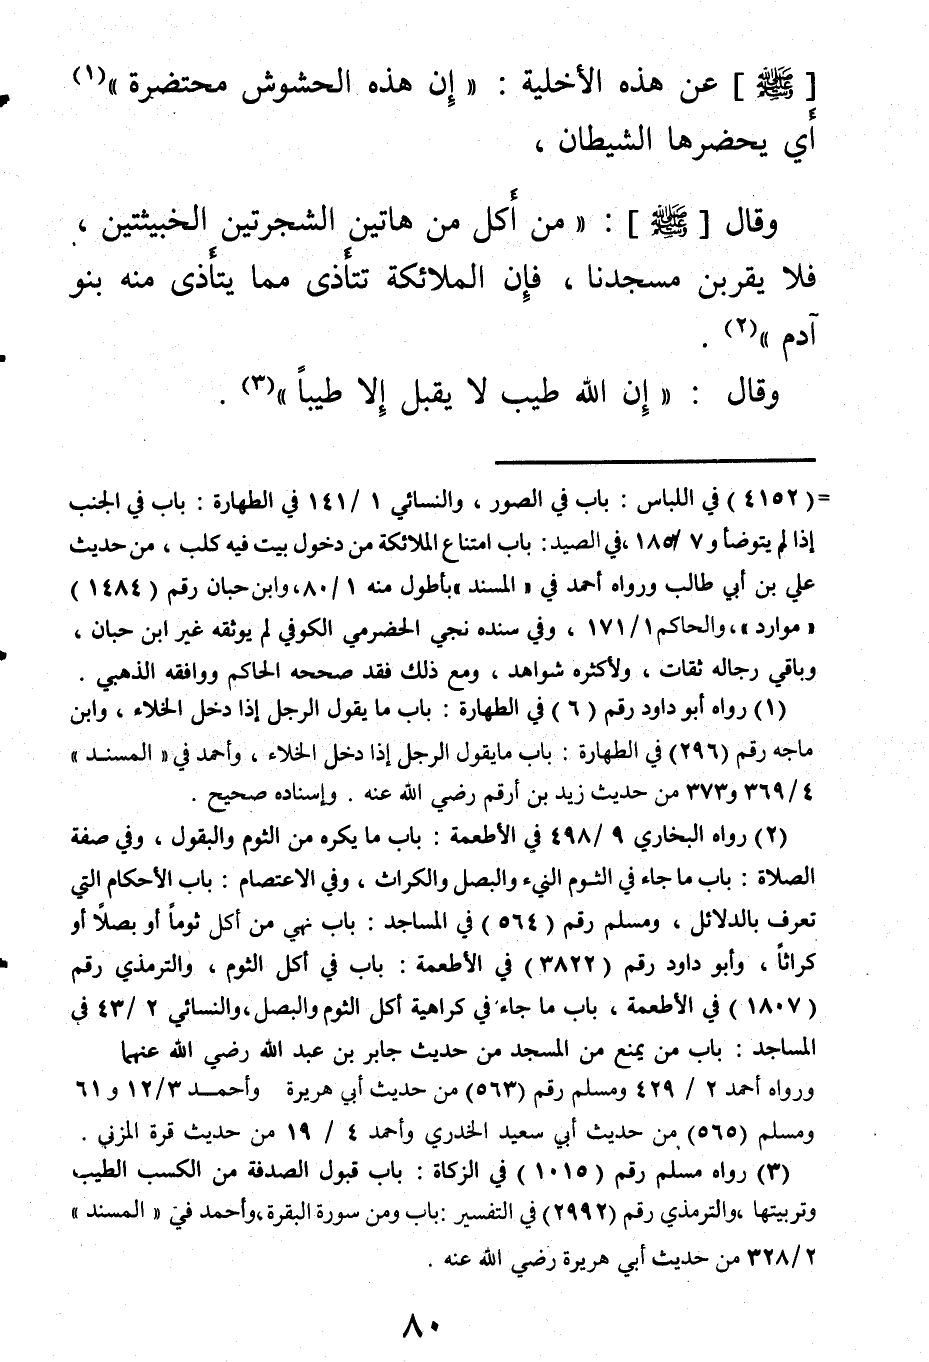 [ ﷺ ] عن هذه الأخلية : « إن هذه الحشوش محتضرة »(١)
أي يحضرها الشيطان ،
وقال [ ﷺ ] : « من أكل من هاتين الشجرتين الخبيثتين ،
فلا يقربن مسجدنا ، فإن الملائكة تتأذى مما يتأذى منه بنو
آدم »(٢) .
وقال : « إن الله طيب لا يقبل إلا طيباً »(٣) .
=( ٤١٥٢ ) في اللباس : باب في الصور ، والنسائي ١ /١٤١ في الطهارة : باب في الجنب
إذا لم يتوضأ و ٧ /١٨٥ ،في الصيد: باب امتناع الملائكة من دخول بيت فيه كلب ، من حديث
علي بن أبي طالب ورواه أحمد في « المسند »بأطول منه ١ /٨٠،وابن حبان رقم ( ١٤٨٤ )
« موارد »،والحاكم١ /١٧١ ، وفي سنده نجي الحضرمي الكوفي لم يوثقه غير ابن حبان ،
وباقي رجاله ثقات ، ولأكثره شواهد ، ومع ذلك فقد صححه الحاكم ووافقه الذهبي .
(١) رواه أبو داود رقم ( ٦ ) في الطهارة : باب ما يقول الرجل إذا دخل الخلاء ، وابن
ماجه رقم (٢٩٦) في الطهارة : باب مايقول الرجل إذا دخل الخلاء ، وأحمد في « المسند »
٤ /٣٦٩ و٣٧٣ من حديث زيد بن أرقم رضي الله عنه . وإسناده صحيح .
(٢) رواه البخاري ٩ /٤٩٨ في الأطعمة : باب ما يكره من الثوم والبقول ، وفي صفة
الصلاة : باب ما جاء في الثوم النيء والبصل والكراث ، وفي الاعتصام : باب الأحكام التي
تعرف بالدلائل ، ومسلم رقم ( ٥٦٤ ) في المساجد : باب نهي من أكل ثوماً أو بصلاً أو
كراثاً ، وأبو داود رقم (٣٨٢٢ ) في الأطعمة : باب في أكل الثوم ، والترمذي رقم
( ١٨٠٧ ) في الأطعمة ، باب ما جاء في كراهية أكل الثوم والبصل،والنسائي ٢ /٤٣ في
المساجد : باب من يمنع من المسجد من حديث جابر بن عبد الله رضي الله عنهما
ورواه أحمد ٢ / ٤٢٩ ومسلم رقم (٥٦٣) من حديث أبي هريرة وأحمـــد ١٢/٣ و ٦١
ومسلم (٥٦٥) من حديث أبي سعيد الخدري وأحمد ٤ / ١٩ من حديث قرة المزني .
(٣) رواه مسلم رقم ( ١٠١٥ ) في الزكاة : باب قبول الصدفة من الكسب الطيب
وتربيتها ،والترمذي رقم (٢٩٩٢) في التفسير :باب ومن سورة البقرة،وأحمد في « المسند »
٣٢٨/٢ من حديث أبي هريرة رضي الله عنه .
٨٠